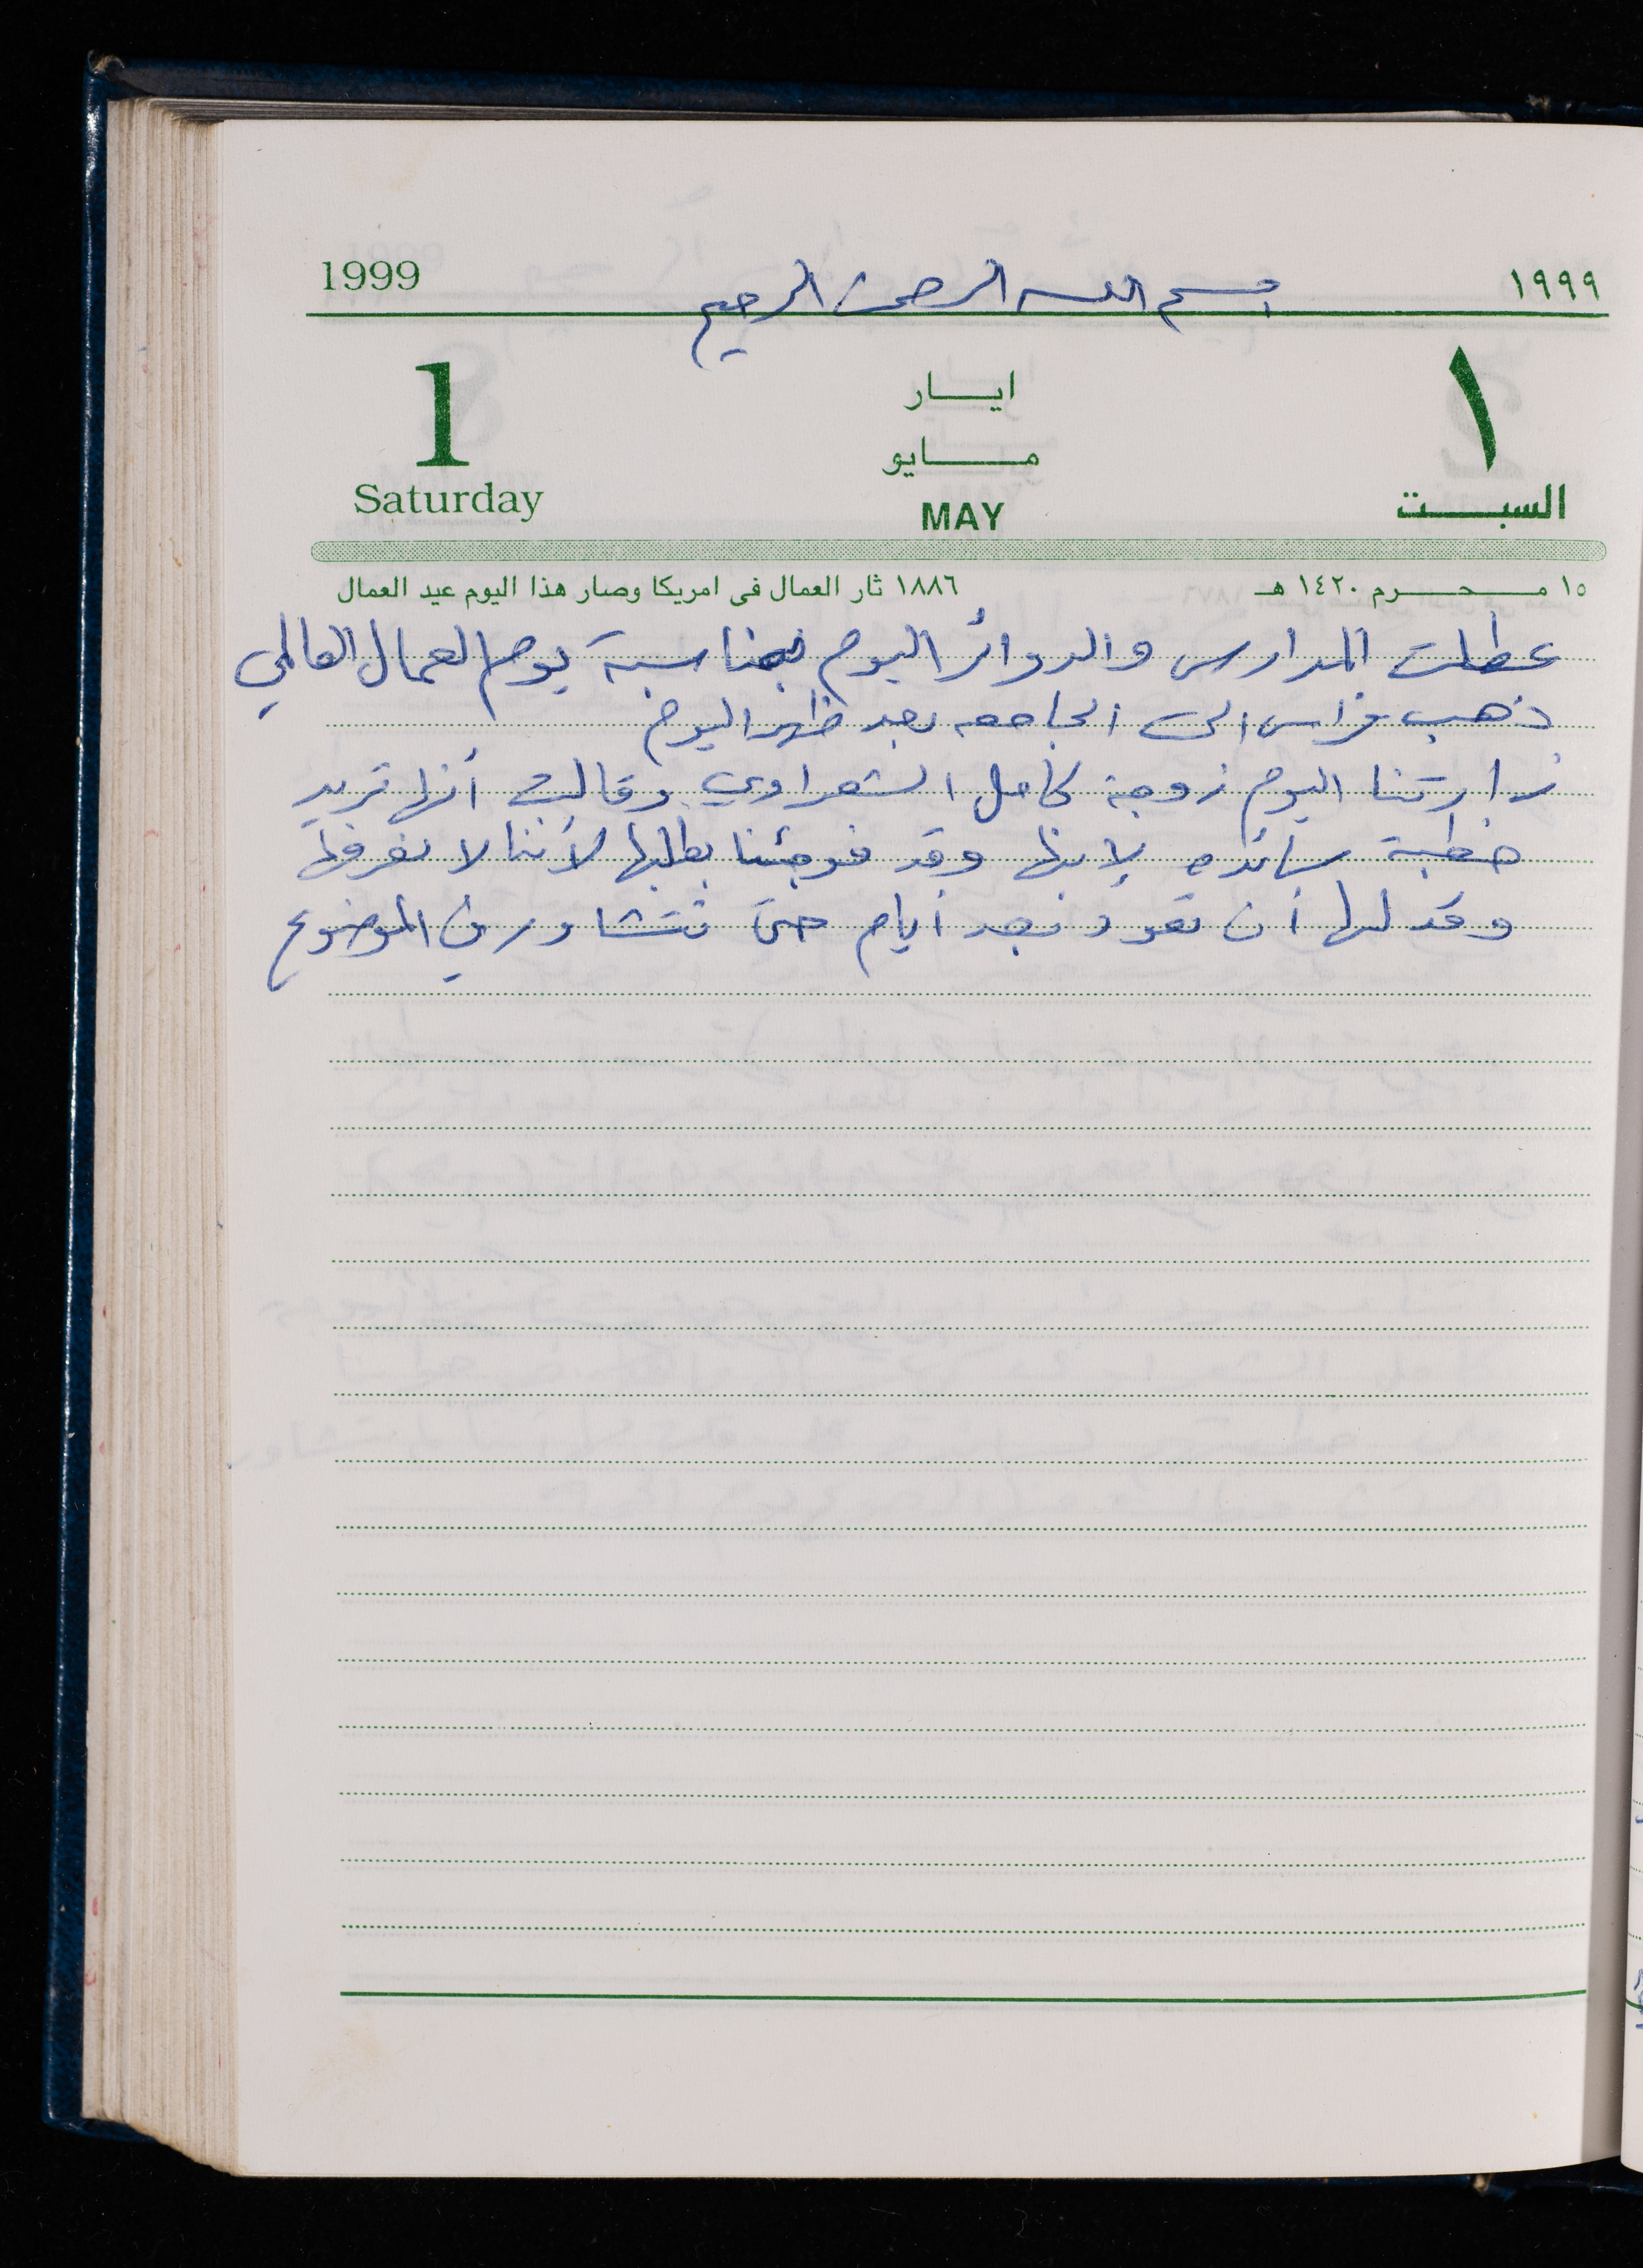 1999
بسم الله الرحمن الرحيم
١٩٩٩
1
ايار
١
مايو
Saturday
MAY
السبت
١٥ محرم ١٤٢٠ هـ
١٨٨٦ ثار العمال فى امريكا وصار هذا اليوم عيد العمال
عطلت المدارس والدوائر اليوم بمناسبة يوم العمال العالمي
ذهب فراس الى الجامعه بعد ظهر اليوم
زارتنا اليوم زوجة كامل الشعراوي وقالت أنها تريد
خطبة سائده لابنها وقد فوجئنا بطلبها لأننا لا نعرفها
وقد لها أن تعود بعد أيام حتى نتشاور في الموضوع